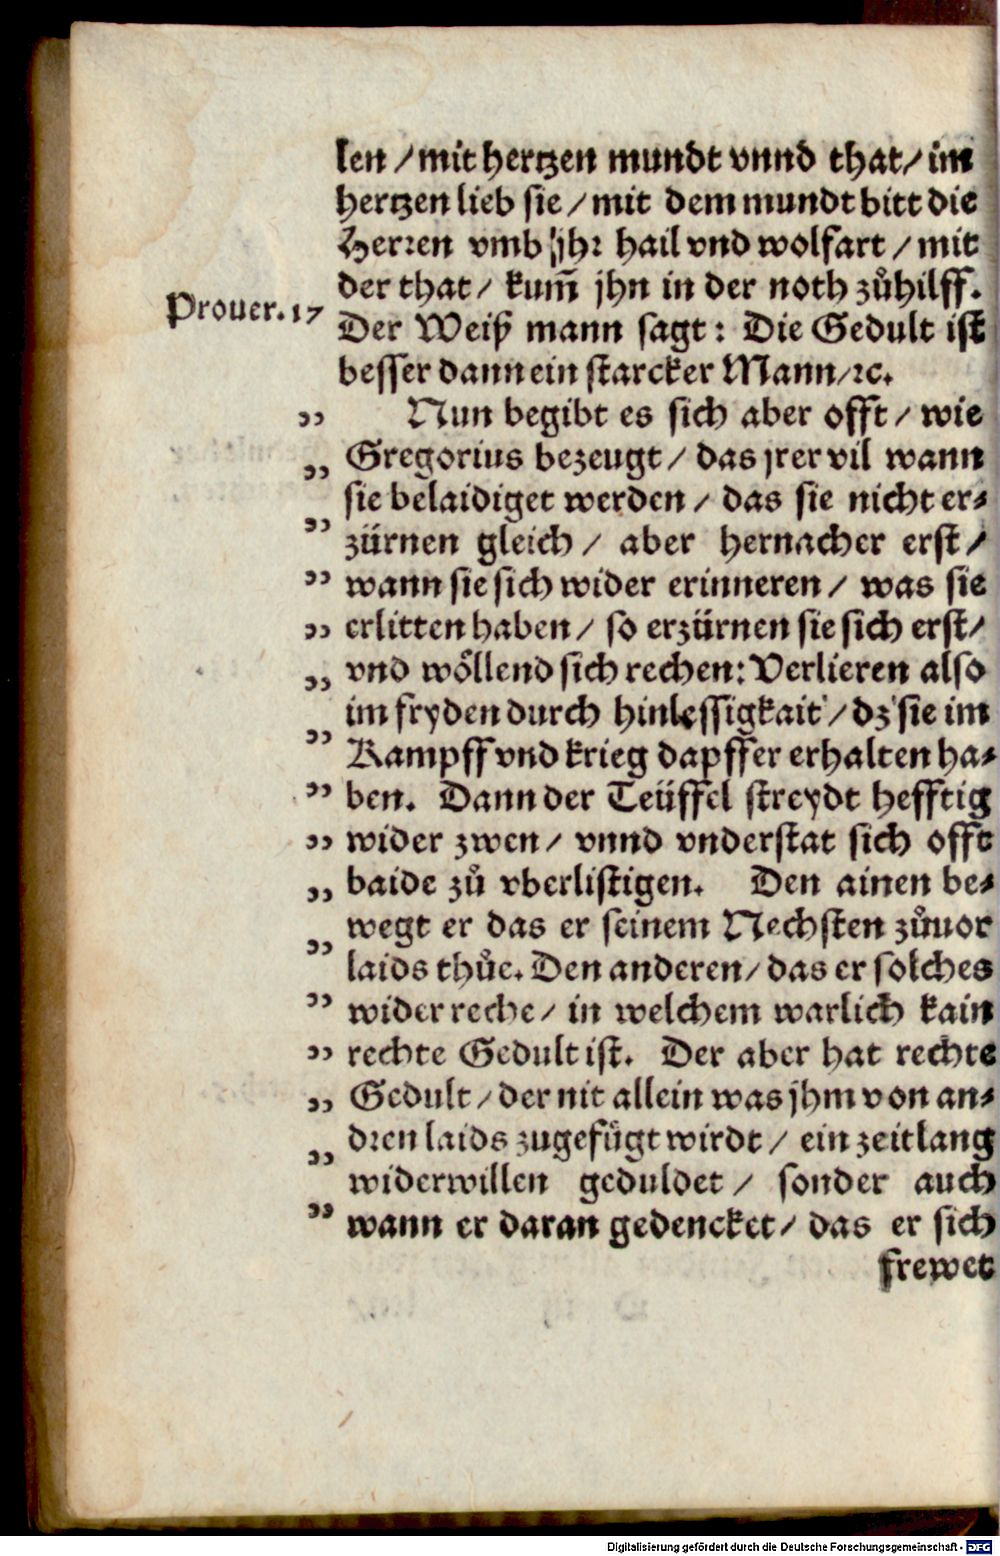 len / mit hertzen mundt vnnd that / im
hertzen lieb sie / mit dem mundt bitt die
Herren vmb jhr hail vnd wolfart / mit
der that / kum̃ jhn in der noth zůhilff.
Prouer. 17
Der Weiß mann sagt: Die Gedult ist
besser dann ein starcker Mann / ꝛc.
" Nun begibt es sich aber offt / wie
" Gregorius bezeugt / das jrer vil wann
sie belaidiget werden / das sie nicht er⸗
" zürnen gleich / aber hernacher erst /
" wann sie sich wider erinneren / was sie
" erlitten haben / so erzürnen sie sich erst /
" vnd wöllend sich rechen: Verlieren also
im fryden durch hinlessigkait / dz sie im
" Kampff vnd krieg dapffer erhalten ha⸗
" ben. Dann der Teüffel streydt hefftig
" wider zwen / vnnd vnderstat sich offt
" baide zů vberlistigen. Den ainen be⸗
" wegt er das er seinem Nechsten zůuor
laids thůe. Den anderen / das er solches
" wider reche / in welchem warlich kain
" rechte Gedult ist. Der aber hat rechte
" Gedult / der nit allein was jhm von an⸗
dren laids zugefügt wirdt / ein zeitlang
" widerwillen geduldet / sonder auch
" wann er daran gedencket / das er sich
frewet
Digitalisierung gefördert durch die Deutsche Forschungsgemeinschaft - DFG